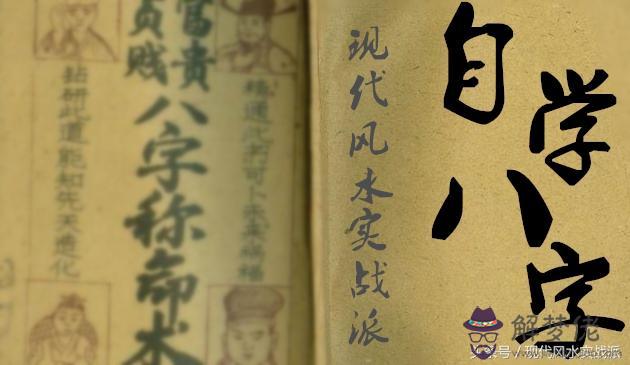 自学
八字
现代风水实战派
富貴
贫贱
八字称命术
精通此术可卜未来祸福
钻研此道能知先天造化
解梦佬
头条号 / 现代风水实战派